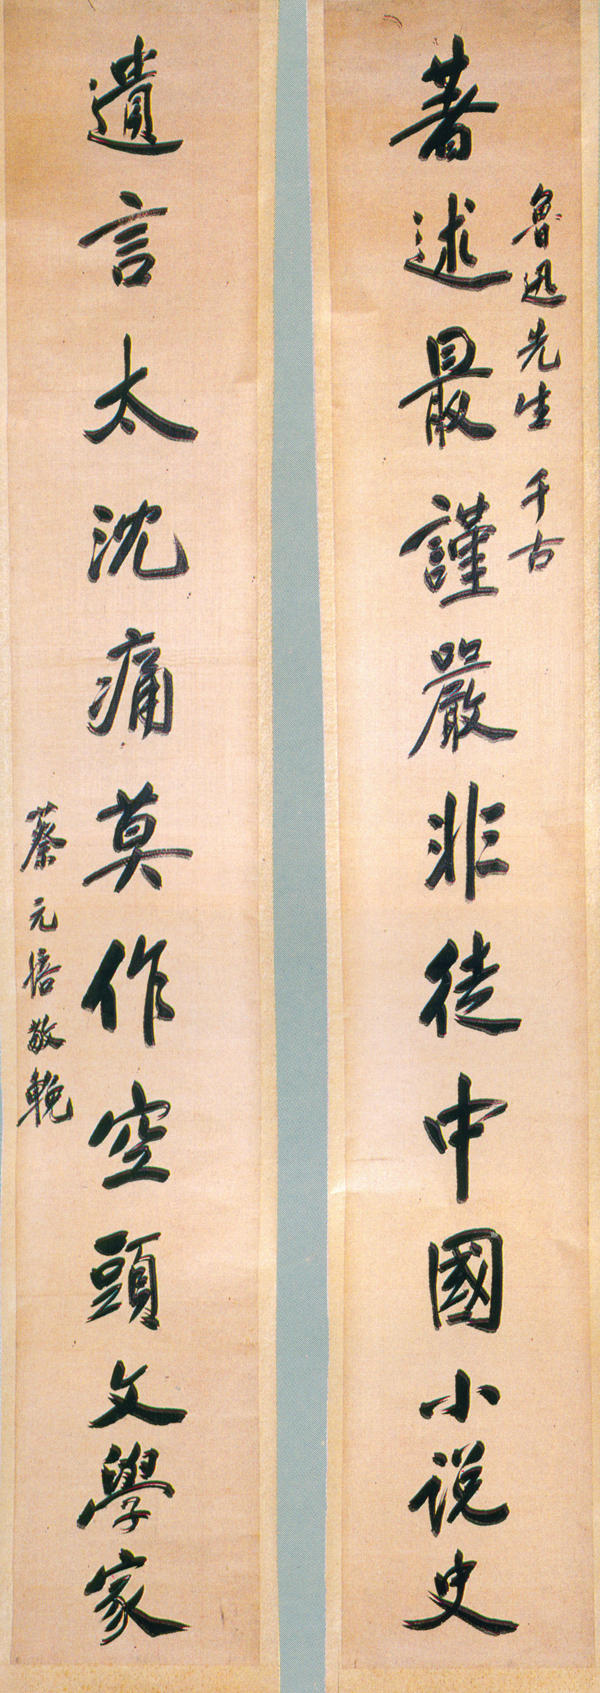 魯迅先生 千古
著述最謹嚴非徒中國小说史
遺言太沈痛莫作空頭文學家
蔡元培敬輓